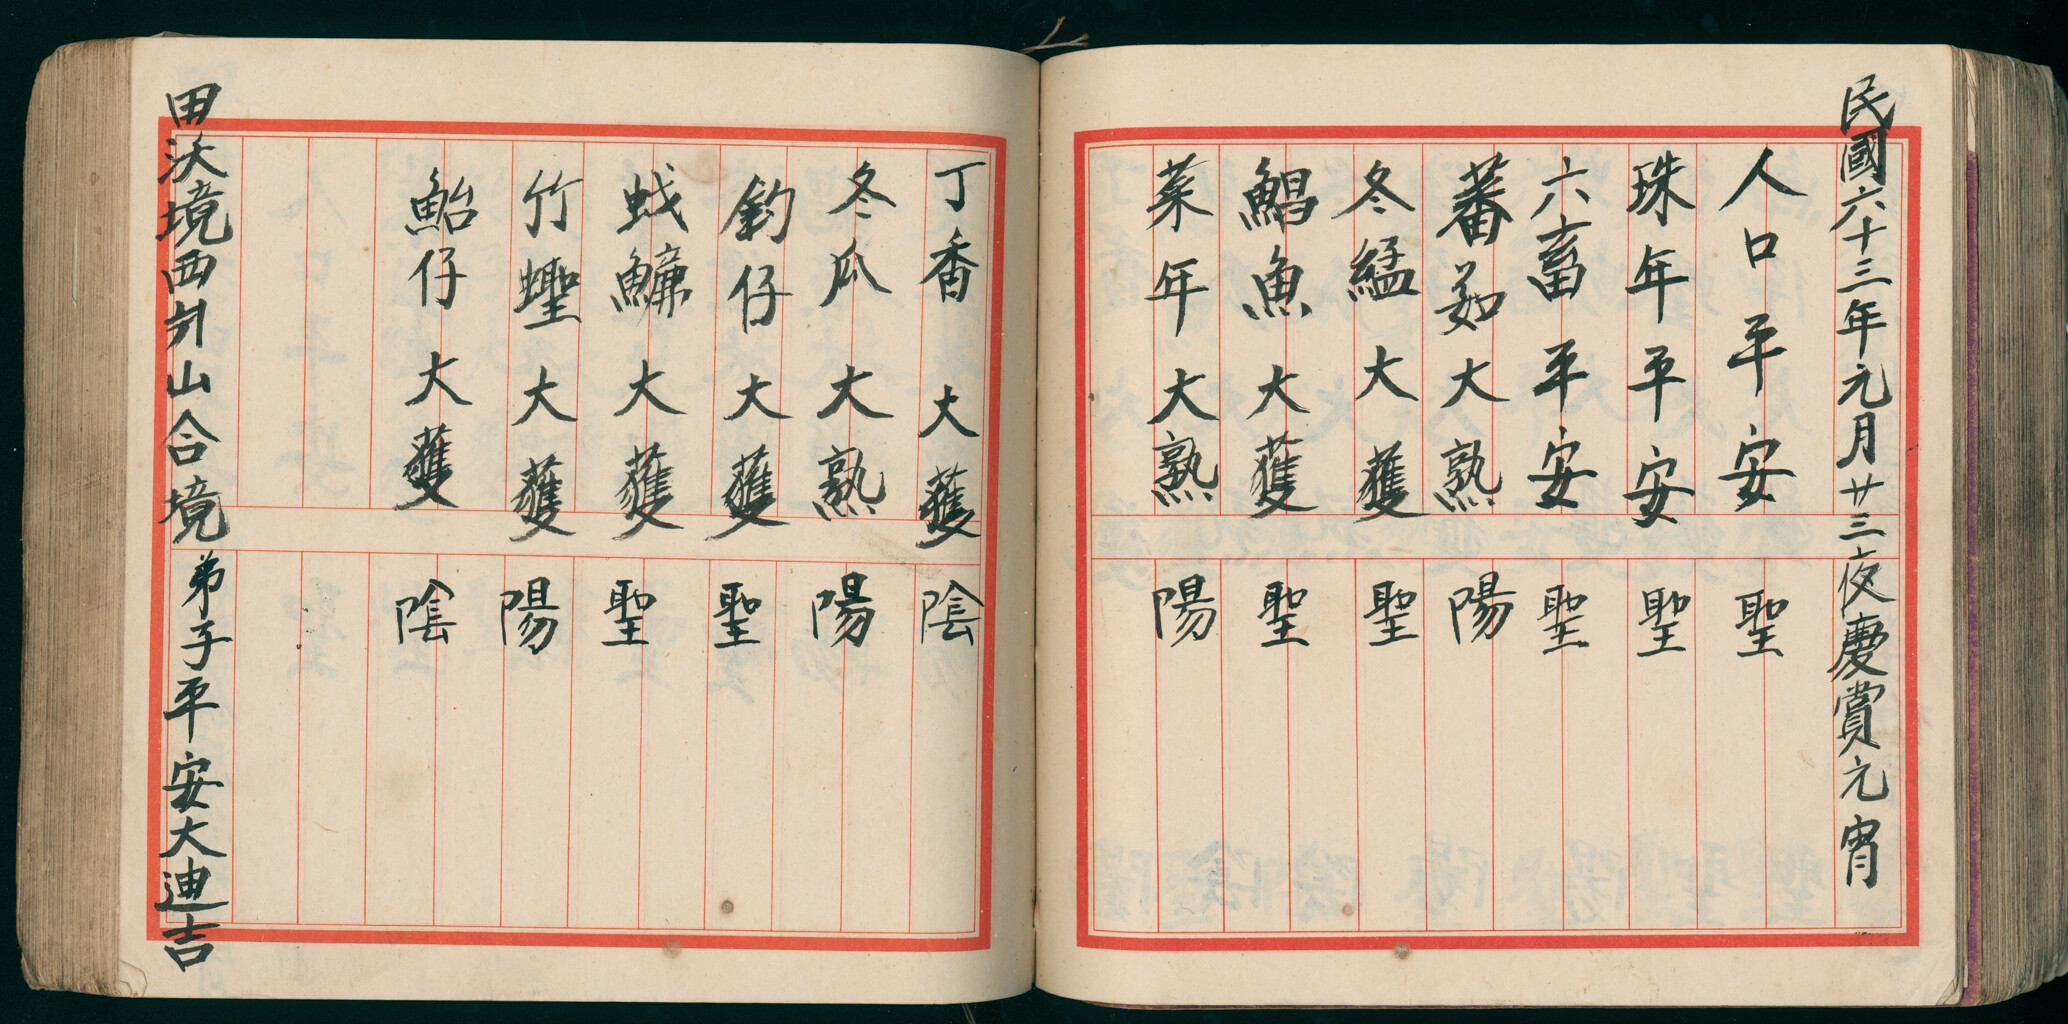 民國六十三年元月廿三夜慶賞元宵
人口平安 聖
珠年平安 聖
六畜平安 聖
蕃茹大熟 陽
冬艋大獲 聖
鯧魚大獲 聖
菜年大熟 陽
丁香大獲 陰
冬瓜大熟 陽
釣仔大獲 聖
䖳鱇大獲 聖
竹蟶大獲 陽
鮐仔大獲 陰
田沃境西 山合境弟子平安大迪吉